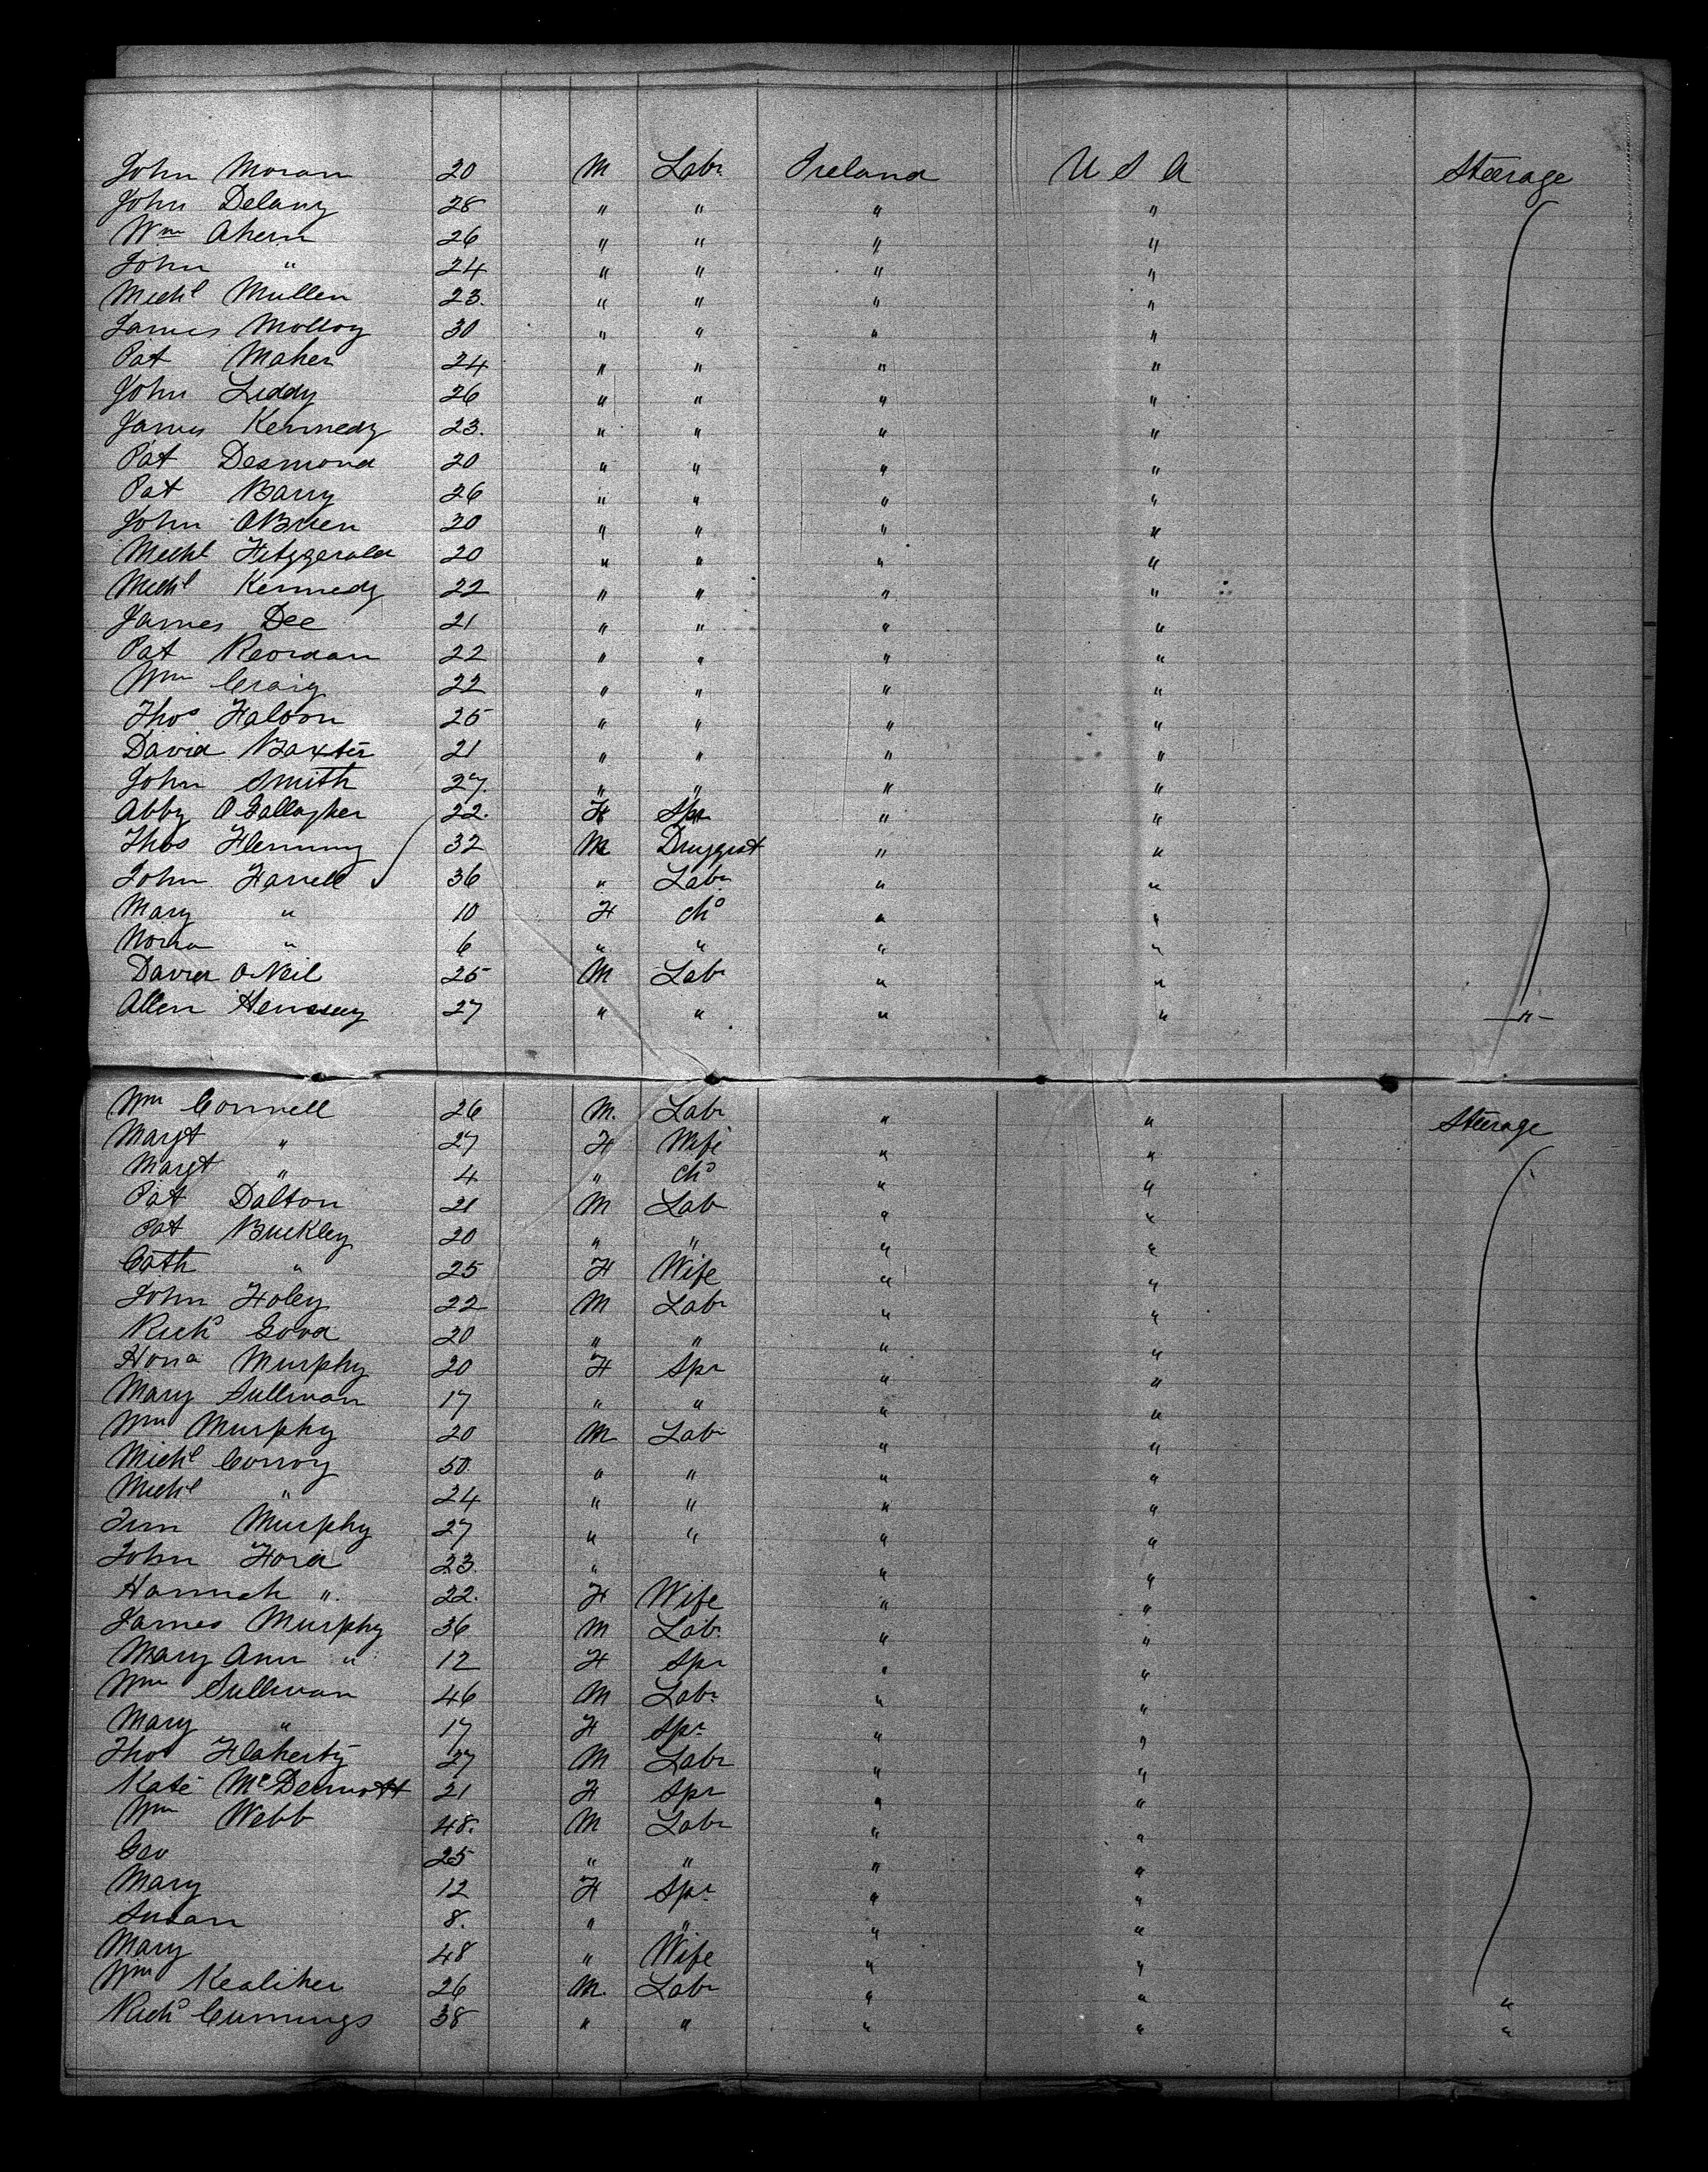 John Moran 20 M Labr Ireland U S A Steerage
John Delany 28 " " " "
Wm Ahern 26 " " " "
John " 24 " " " "
Michl Mullen 23. " " " "
James Molloy 30 " " " "
Pat Maher 24 " " " "
John Liddy 26 " " " "
James Kennedy 23. " " " "
Pat Desmond 20 " " " "
Pat Barry 26 " " " "
John OBrien 20 " " " "
Michl Fitzgerald 20 " " " "
Michl Kennedy 22 " " " "
James Dee 21 " " " "
Pat Reordan 22 " " " "
Wm Craig 22 " " " "
Thos Falvon 25 " " " "
David Baxter 21 " " " "
John Smith 27. " " " "
Abby O Gallagher 22. F Spr " "
Thos Flemming 32 M Druggist " "
John Farrell 36 " Labr " "
Mary " 10 F chd " "
Norra " 6 " " " "
David O Neil 25 M Labr " "
Allen Henssey 27 " " " " "
Wm Connell 26 M. Labr " " Steerage
Margt " 27 F Wife " "
Margt " 4 " chd " "
Pat Dalton 21 M Lab " "
Pat Buckley 20 " " " "
Cath " 25 F Wife " "
John Foley 22 M Labr " "
Richd 20 " " " "
Hona Murphy 20 F Spr " "
Mary Sullivan 17 " " " "
Wm Murphy 20 M Labr " "
Michl Conroy 50 " " " "
Michl " 24 " " " "
Murphy 27 " " " "
John Ford 23. " " "
Hannah " 22. F Wife " "
James Murphy 36 M Labr " "
Mary Ann " 12 F Spr " "
Wm Sullivan 46 M Labr " "
Mary " 17 F Spr " "
Thos Flaherty 27 M Labr " "
Kate McDermott 21 F Spr " "
Wm Webb 48. M Labr " "
Geo 25 " " " "
Mary 12 F Spr " "
Susan 8. " " " "
Mary 48 " Wife " "
Wm Kealiher 26 M. Labr " " "
Richd Cummings 38 " " " " "